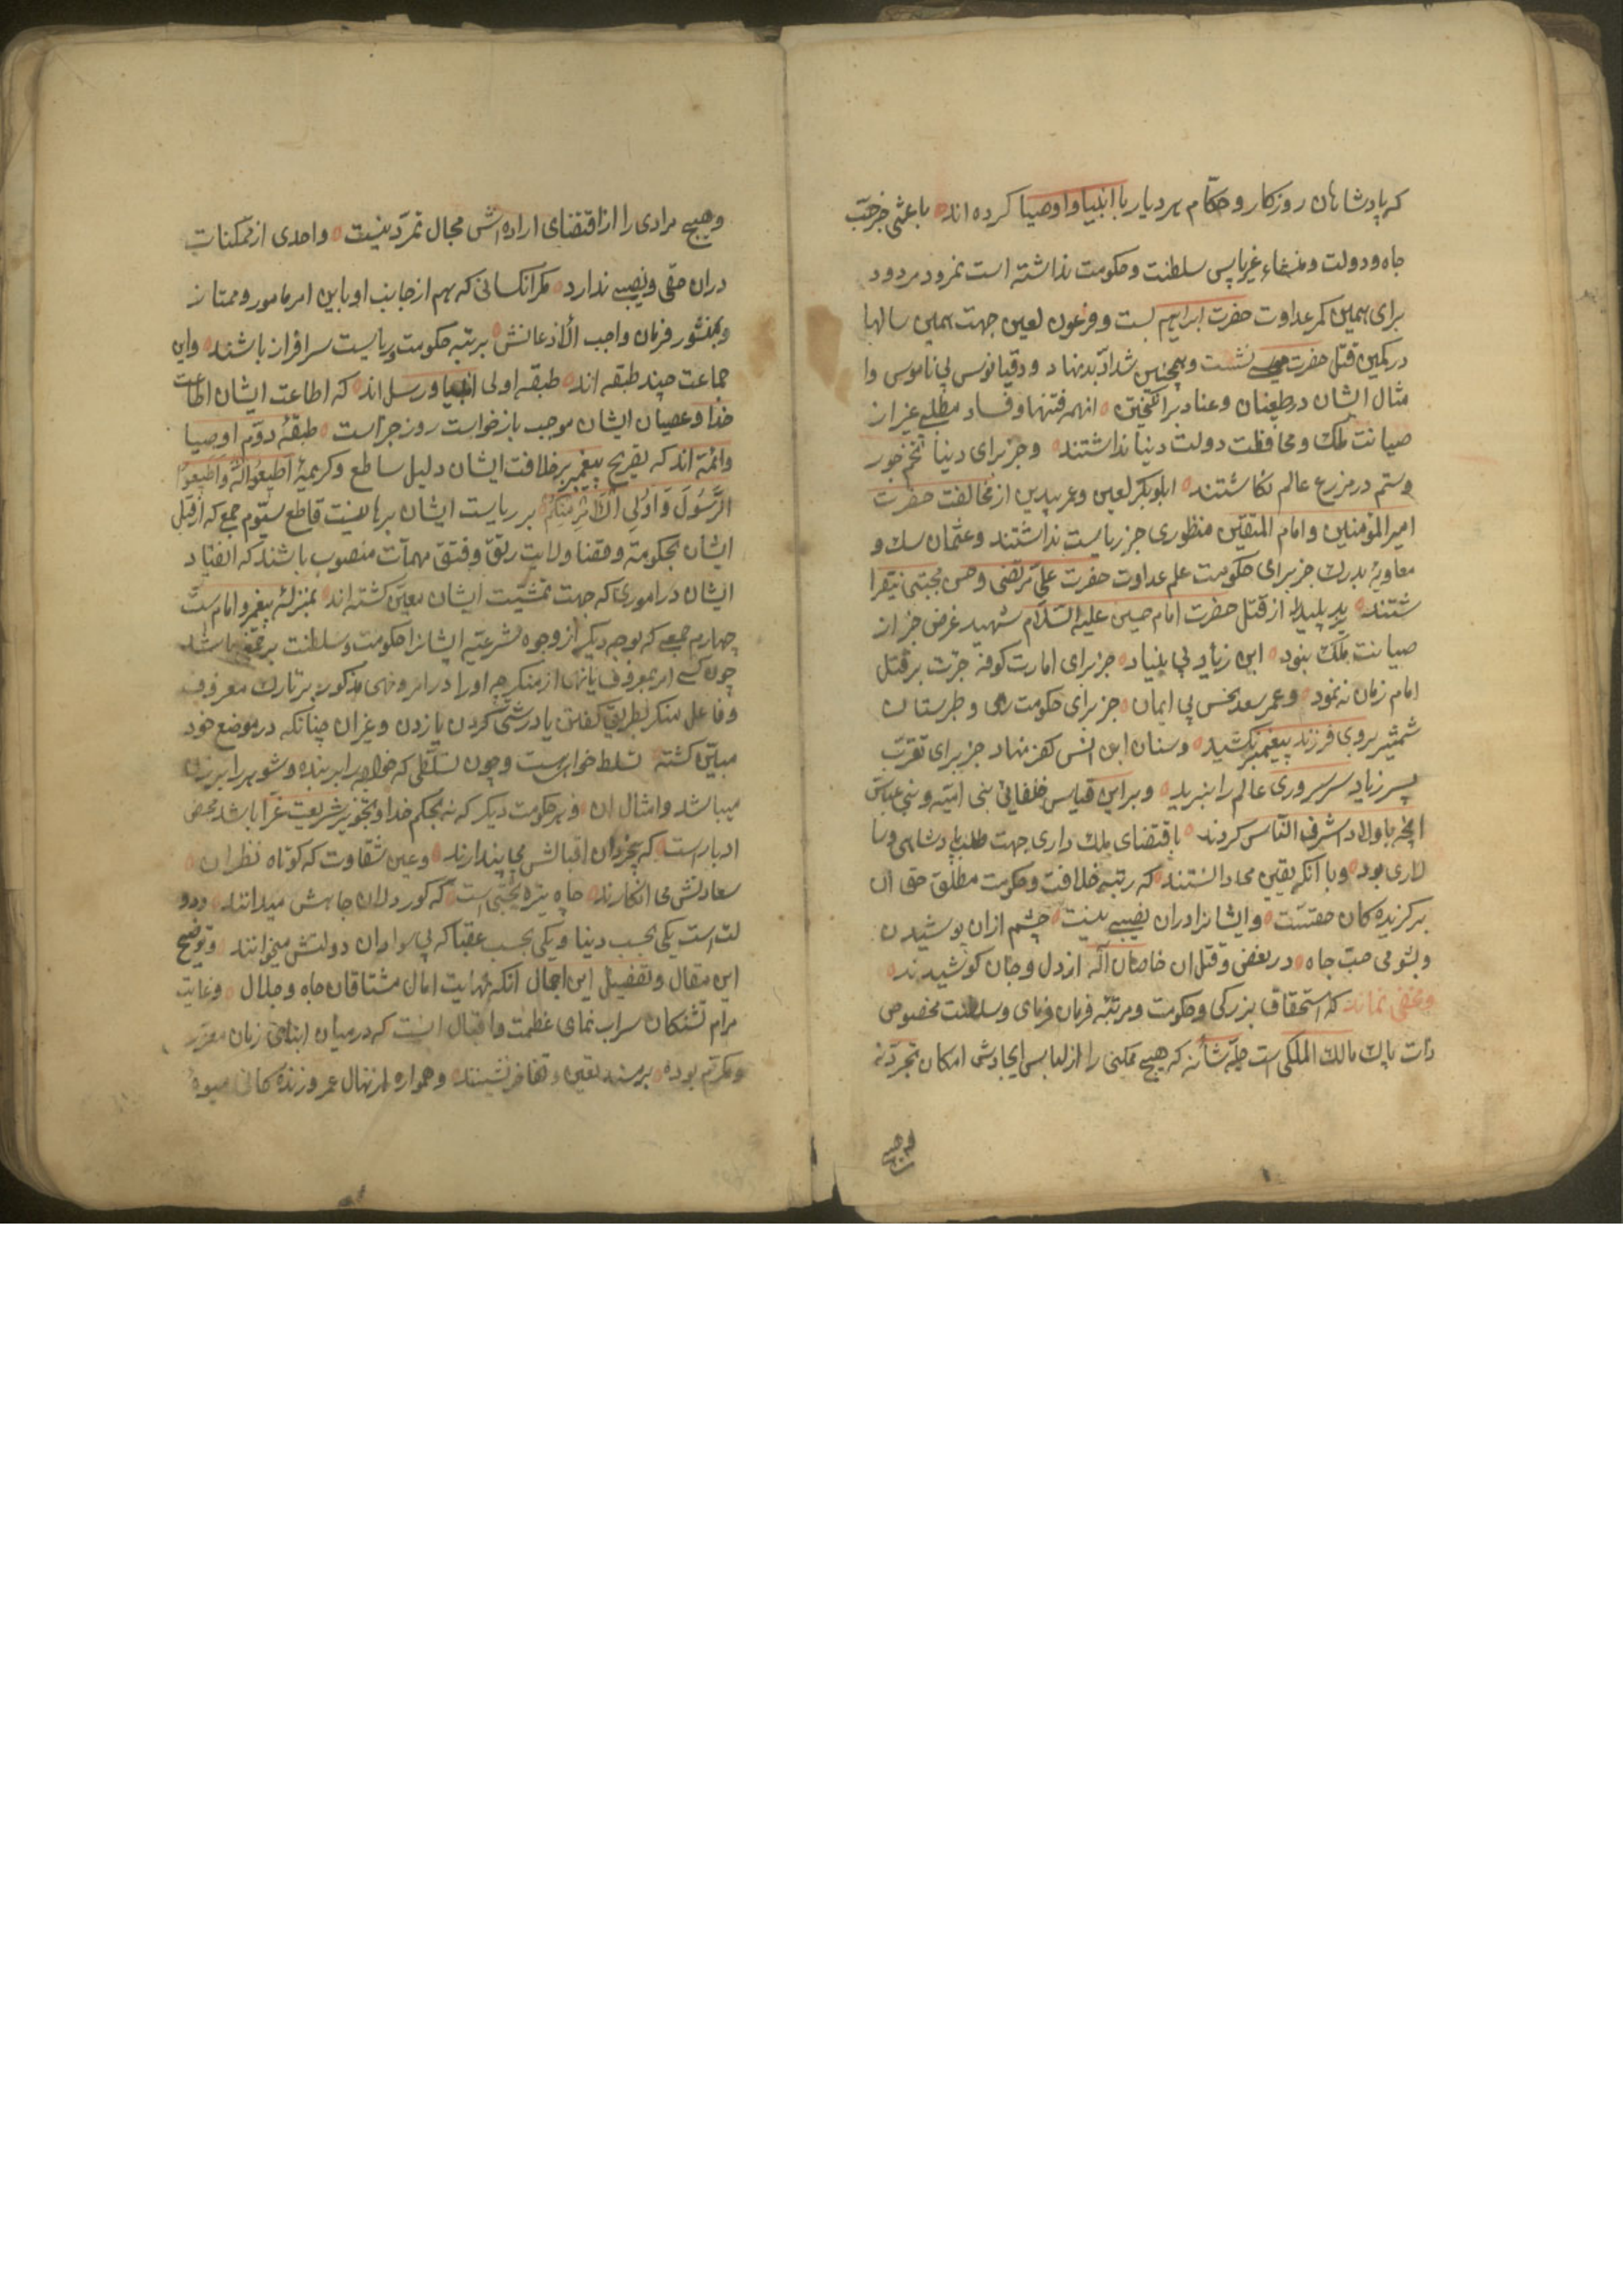 که پادشاهان روزکار و حکّام هر دیار با انبیا و اوصیا کرده اند باعثی جز حبّ
جاه و دولت و منشاء غیر پاس سلطنت و حکومت نداشته است نمرود مردود
برای همین کمر عداوت حضرت ابراهیم بست و فرعون لعین جهت همین سالها
در کمین قتل حضرت نشست و همچنین شدّاد بدنهاد و دقیانوس بی ناموس و ا
مثال ایشان در طغیان و عناد بر انکیختن انهمه فتنها و فساد مطلبی غیر از
صیانت ملک و محافظت دولت دنیا نداشتند و جز برای دنیا تخم جور
و ستم در مزرع عالم نکاشتند ابوبکر لعین و عمر بیدین از مخالفت حضرت
امیر المؤمنین و امام المتقین منظوری جز ریاست نداشتند و عثمان سک و
معاویهٔ بدرک جز برای حکومت علم عداوت حضرت علیّ مرتضی و حسن مجتبی نیفرا
شتند یزید پلید از قتل حضرت امام حسین علیه السّلام شهید غرض جز از
صیانت ملک نبود ابن زیاد بی بنیاد جز برای امارت کوفه جرئت بر قتل
امام زمان نه نمود و عمر سعد نحس بی ایمان جز برای حکومت ری و طبرستان
شمشیر بروی فرزند پیغمبر نکشید و سنان ابن انس کفر نهاد جز برای تقرّب
پسر زیاد سر سروری عالم را نبرید و بر این قیاس خلفائی بنی امیّه و بنی عبّاس
انچه باولاد اشرف النّاس کردند باقتضای ملک داری جهت طلب پادشاهی و سا
لاری بود و با انکه یقین میدانستند که رتبهٔ خلافت و حکومت مطلق حق ان
برکزیده کان حقست و ایشانرا دران نصیبی نیست چشم ازان پوشیدن
و بشومی حبّ جاه در بغض و قتل ان خاصان اله از دل و جان کوشیدند
و مخفی نماند که استحقاق بزرکی و حکومت و مرتبهٔ فرمان فرمای و سلطنت مخصوص
ذات پاک مالک الملکی است جلّ شأنه که هیچ ممکنی را از لباس ایجادش امکان تجرّد نه
و هیچ مرادی را از اقتضای اراده اش مجال تمرّد نیست و احدی از ممکنات
دران حقّی و نصیبی ندارد مکر انکسانی که هم از جانب او باین امر مامور و ممتاز
و بمنشور فرمان واجب الاذعانش برتبه حکومت و ریاست سرافراز باشند و این
جماعت چند طبقه اند طبقه اولی انبیا و رسل اند که اطاعت ایشان اطاعت
خدا و عصیان ایشان موجب بازخواست روز جزاست طبقهٔ دوّم اوصیا
و ائمّه اند که تصریح پیغمبر بر خلافت ایشان دلیل ساطع و کریمهٔ اَطیعُوا اللهَ وَ اَطیعُوا
الرَّسُولَ وَ اُولِی الاَمْرِ مِنْکُمْ بر ریاست ایشان برهانیست قاطع سیّوم جمعی که از قبل
ایشان بحکومة و قضا و لایت رتق و فتق مهمات منصوب باشند که انقیاد
ایشان در اموری که جهت تمشیّت ایشان معیّن کشته اند بمنزلهٔ پیغمبر و امام ست
چهارم جمعی که بوجه دیکر از وجوه شرعیّه ایشانرا حکومت و سلطنت بر باشد
چون کسی امر بمعروف یا نهی از منکر چه او را در امر و نهی مذکور بر تارک معروف
و فاعل منکر بطریق کفتن یا درشتی کردن یا زدن و غیر ان چنانکه در موضع خود
مبیّن کشته تسلط خواهست و چون تسلّطی که خواجه را بر بنده و شوهر را بر زن
میباشد و امثال ان و هر حکومت دیکر که نه بحکم خدا و تجویز شریعت غرّا باشد محض
ادبارست که بیخردان اقبالش می پندارند و عین شقاوت که کوتاه نظران
سعادتش می انکارند چاه تیره بختی است که کوردلان جاهش میدانند و دو
لت است یکی بحسب دنیا و یکی بحسب عقبا که بی سوادان دولتش میخوانند و توضیح
این مقال و تفصیل این اجمال انکه نهایت امال مشتاقان جاه و جلال و غایت
مرام تشنکان سراب نمای عظمت و اقبال انست که در میان ابنائی زمان معزّز
و مکرّم بوده بر مسند تعین و تفاخر نشینند و همواره از نهال عمر و زنده کانی میوهٔ